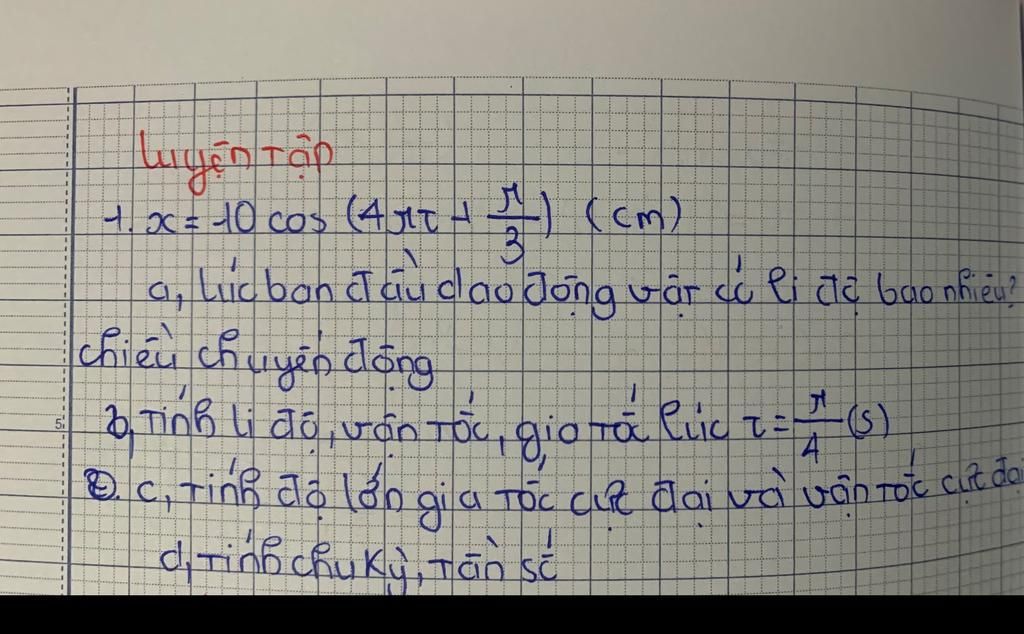 Luyện Tập
1. x = 10 cos (4πt + π/3) (cm)
a, Lúc ban đầu dao động vật có li độ bao nhiêu?
chiều chuyển động
b, Tính li độ, vận tốc, gia tốc lúc t = π/4 (s)
c, Tính độ lớn gia tốc cực đại và vận tốc cực đại
d, Tính chu kỳ, tần số